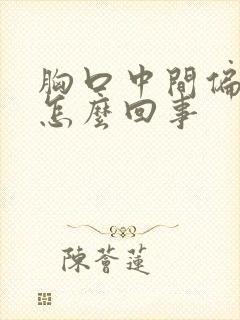 胸口中間偏
怎麼回事
陳薈蓮